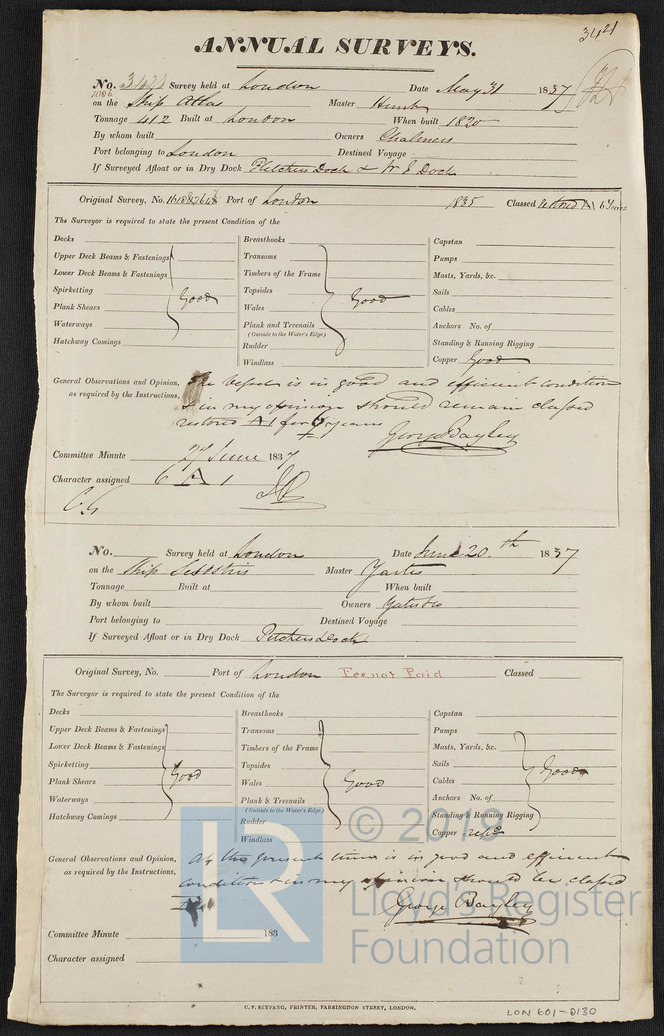 3421
ANNUAL SURVEYS.
No. Survey held at London Date May 31 1837
1086
on the Ship Atlas Master Hunt
Tonnage 412 Built at London When built 1820
By whom built Owners Chalmers
Port belonging to London Destined Voyage
If Surveyed Afloat or in Dry Dock Fletchers Dock & W I Dock
Original Survey, No. Port of London 1835 Classed restored A1 6 Years
The Surveyor is required to state the present Condition of the
Decks
Upper Deck Beams & Fastenings
Lower Deck Beams & Fastenings
Spirketting
Plank Shears
Waterways
Hatchway Comings
Good
Breasthooks
Transoms
Timbers of the Frame
Topsides
Wales
Plank and Treenails
(Outside to the Water's Edge)
Rudder
Windlass
Good
Capstan
Pumps
Masts, Yards, &c.
Sails
Cables
Anchors No. of
Standing & Running Rigging
Copper Good
General Observations and Opinion, The Vessel is in good and efficient condition
as required by the Instructions, & in my opinion should remain classed
restored A1 for 6 years
George Bayley
Committee Minute 27 June 1837
Character assigned 6 A 1
C.G
No. Survey held at London Date June 20th 1837
on the Ship Sesostris Master Yates
Tonnage Built at When built
By whom built Owners Yates & Co
Port belonging to Destined Voyage
If Surveyed Afloat or in Dry Dock Pitchers Dock
Original Survey, No. Port of London Fee not Paid Classed
The Surveyor is required to state the present Condition of the
Decks
Upper Deck Beams & Fastenings
Lower Deck Beams & Fastenings
Spirketting
Plank Shears
Waterways
Hatchway Comings
Good
Breasthooks
Transoms
Timbers of the Frame
Topsides
Wales
Plank & Treenails
(Outside to the Water's Edge)
Rudder
Windlass
Good
Capstan
Pumps
Masts, Yards, &c.
Sails
Cables
Anchors No. of
Standing & Running Rigging
Good
Copper
General Observations and Opinion, At the present time is in good and efficient
as required by the Instructions, condition & in my opinion should be classed
George Bayley
Committee Minute 183
Character assigned
LR
© 2019
Lloyd's Register
Foundation
C. F. SEYFANG, PRINTER, FARRINGDON STREET, LONDON.
LON 601-0130